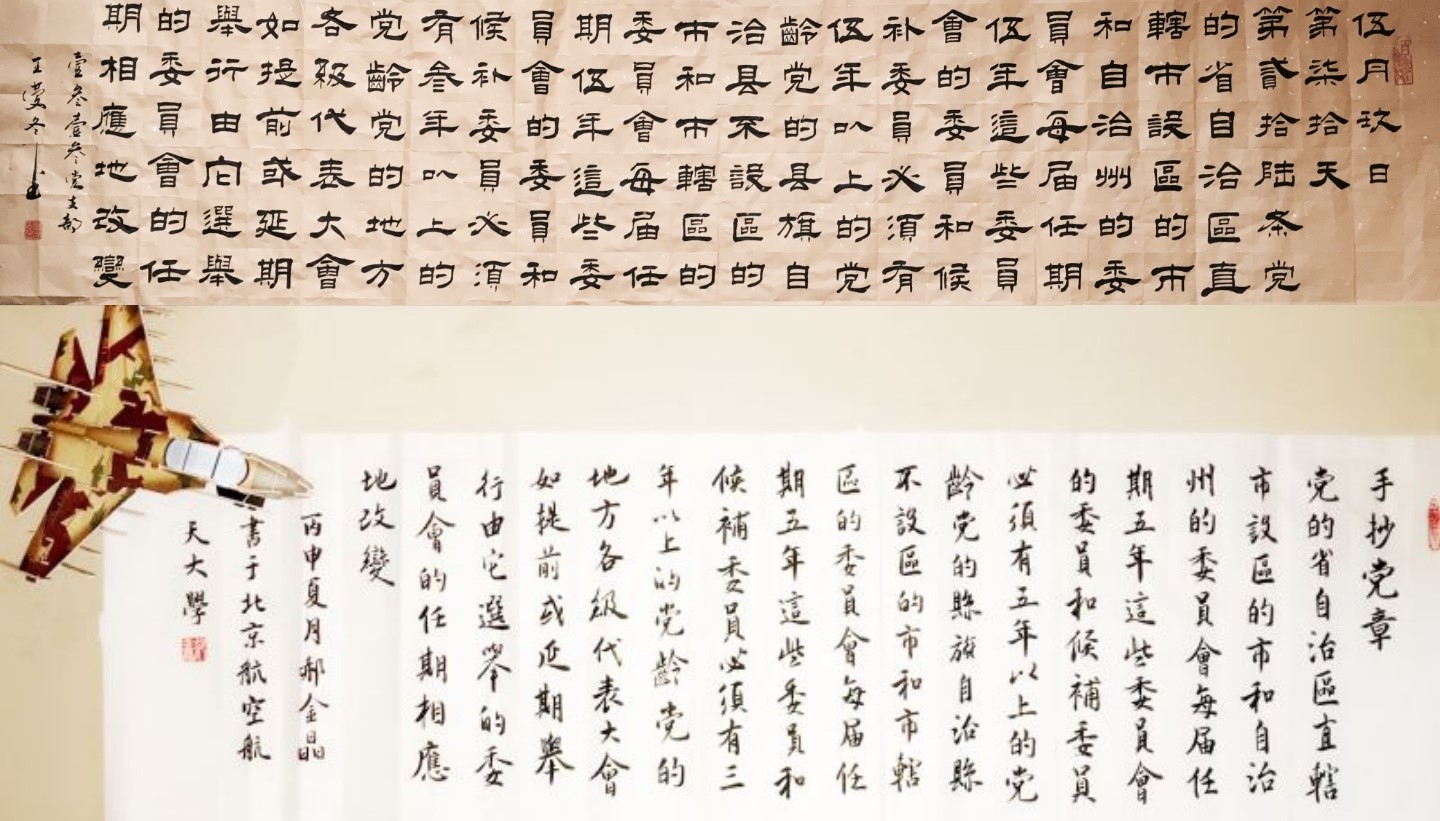 伍月玖日
第柒拾天
第貳拾陆条党
的省自治區直
轄市設區的市
和自治州的委
員會每届任期
伍年這些委員
會的委員和候
补委員必須有
伍年以上的党
齡党的县旗自
治县不設區的
市和市轄區的
委員會每届任
期伍年這些委
員會的委員和
候补委員必須
有叁年以上的
党齡党的地方
各級代表大會
如提前或延期
舉行由它選舉
的委員會的任
期相應地改變
壹叁壹叁党支部
王冬书
手抄党章
党的省自治區直轄
市設區的市和自治
州的委員會每届任
期五年這些委員會
的委員和候補委員
必須有五年以上的党
齡党的縣旗自治縣
不設區的市和市轄
區的委員會每届任
期五年這些委員和
候補委員必須有三
年以上的党齡党的
地方各級代表大會
如提前或延期舉
行由它選举的委
員會的任期相應
地改變
丙申夏月郝金晶
書于北京航空航
天大學